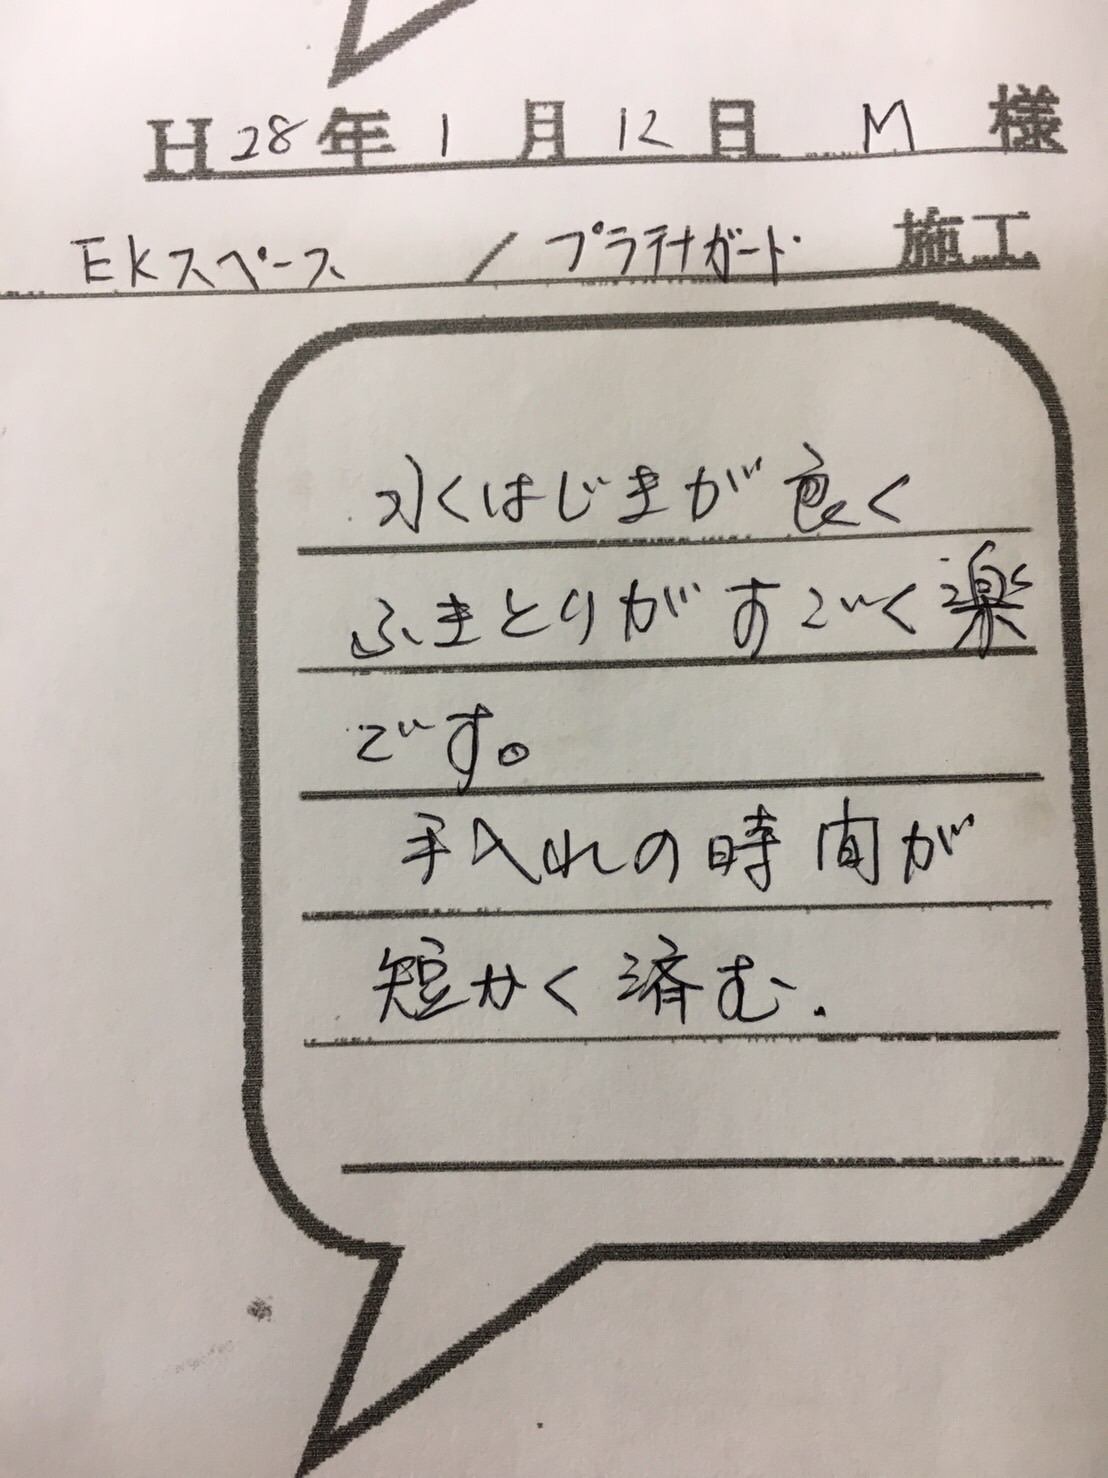 H28年1月12日 M 様
EKスペース / プラテナガード 施工
水くはじまが良く
ふきとりがすごく楽
です。
手入れの時間が
短かく済む.